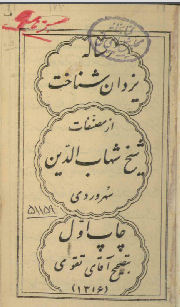 رساله
یزدان شناخت
از مصنفات
شیخ شهاب الدین
سهروردی
۵۱۱۵۹
چاپ اول
بتصحیح آقای تقوی
(۱۳۱۶)